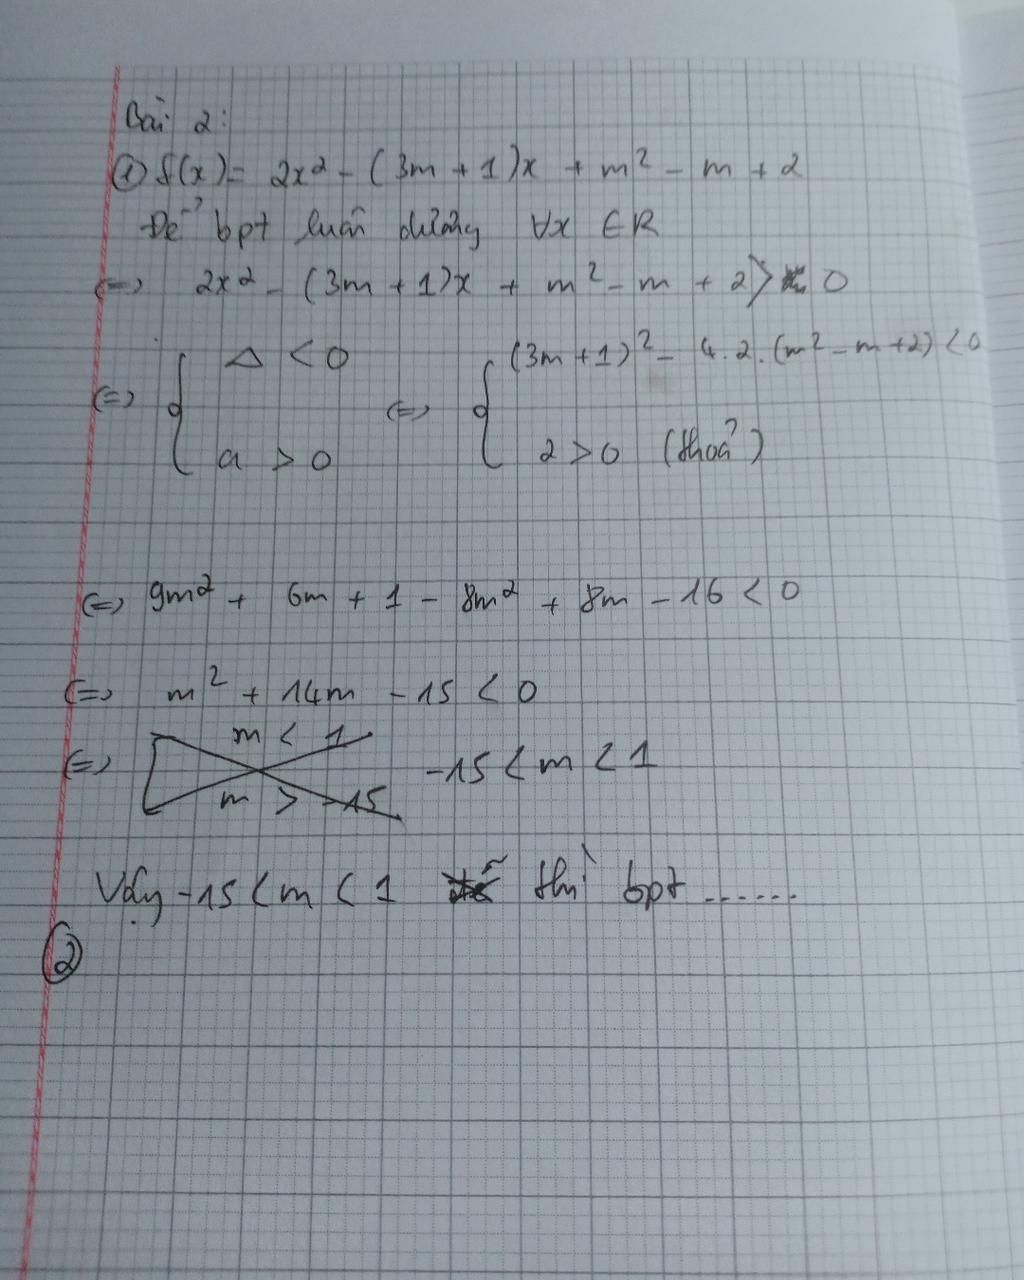 Bài 2:
① f(x) = 2x² - (3m + 1)x + m² - m + 2
Để bpt luôn dương ∀x ∈ R
(=) 2x² - (3m + 1)x + m² - m + 2 > 0
(=) { Δ < 0 (=) { (3m + 1)² - 4.2.(m² - m + 2) < 0
a > 0 2 > 0 (thoả)
(=) 9m² + 6m + 1 - 8m² + 8m - 16 < 0
(=) m² + 14m - 15 < 0
(=) [ m < 1 -15 < m < 1
m > -15
Vậy -15 < m < 1 thì bpt ......
②